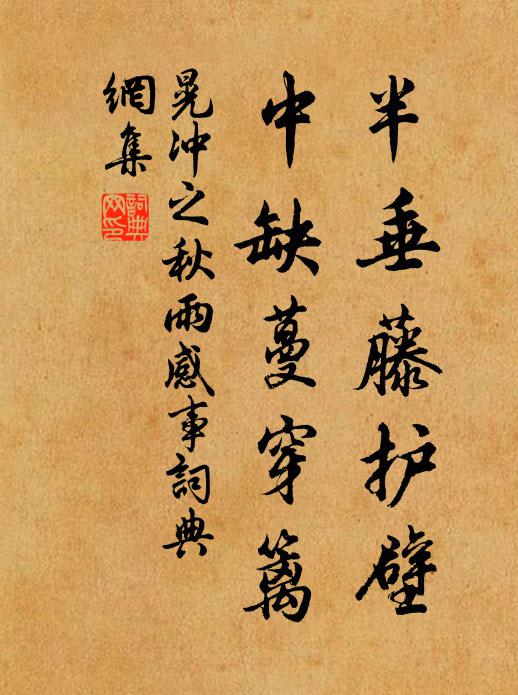 半垂藤护壁
中缺蔓穿篱
晃冲之秋雨感事詞典
網集
詞典网印